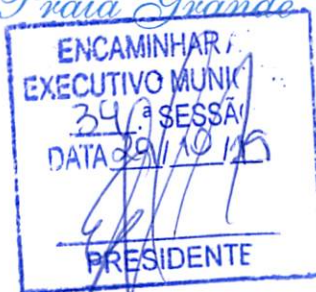 Praia Grande
ENCAMINHAR
EXECUTIVO MUNIC
34ª SESSÃ
DATA 29/10/19
PRESIDENTE